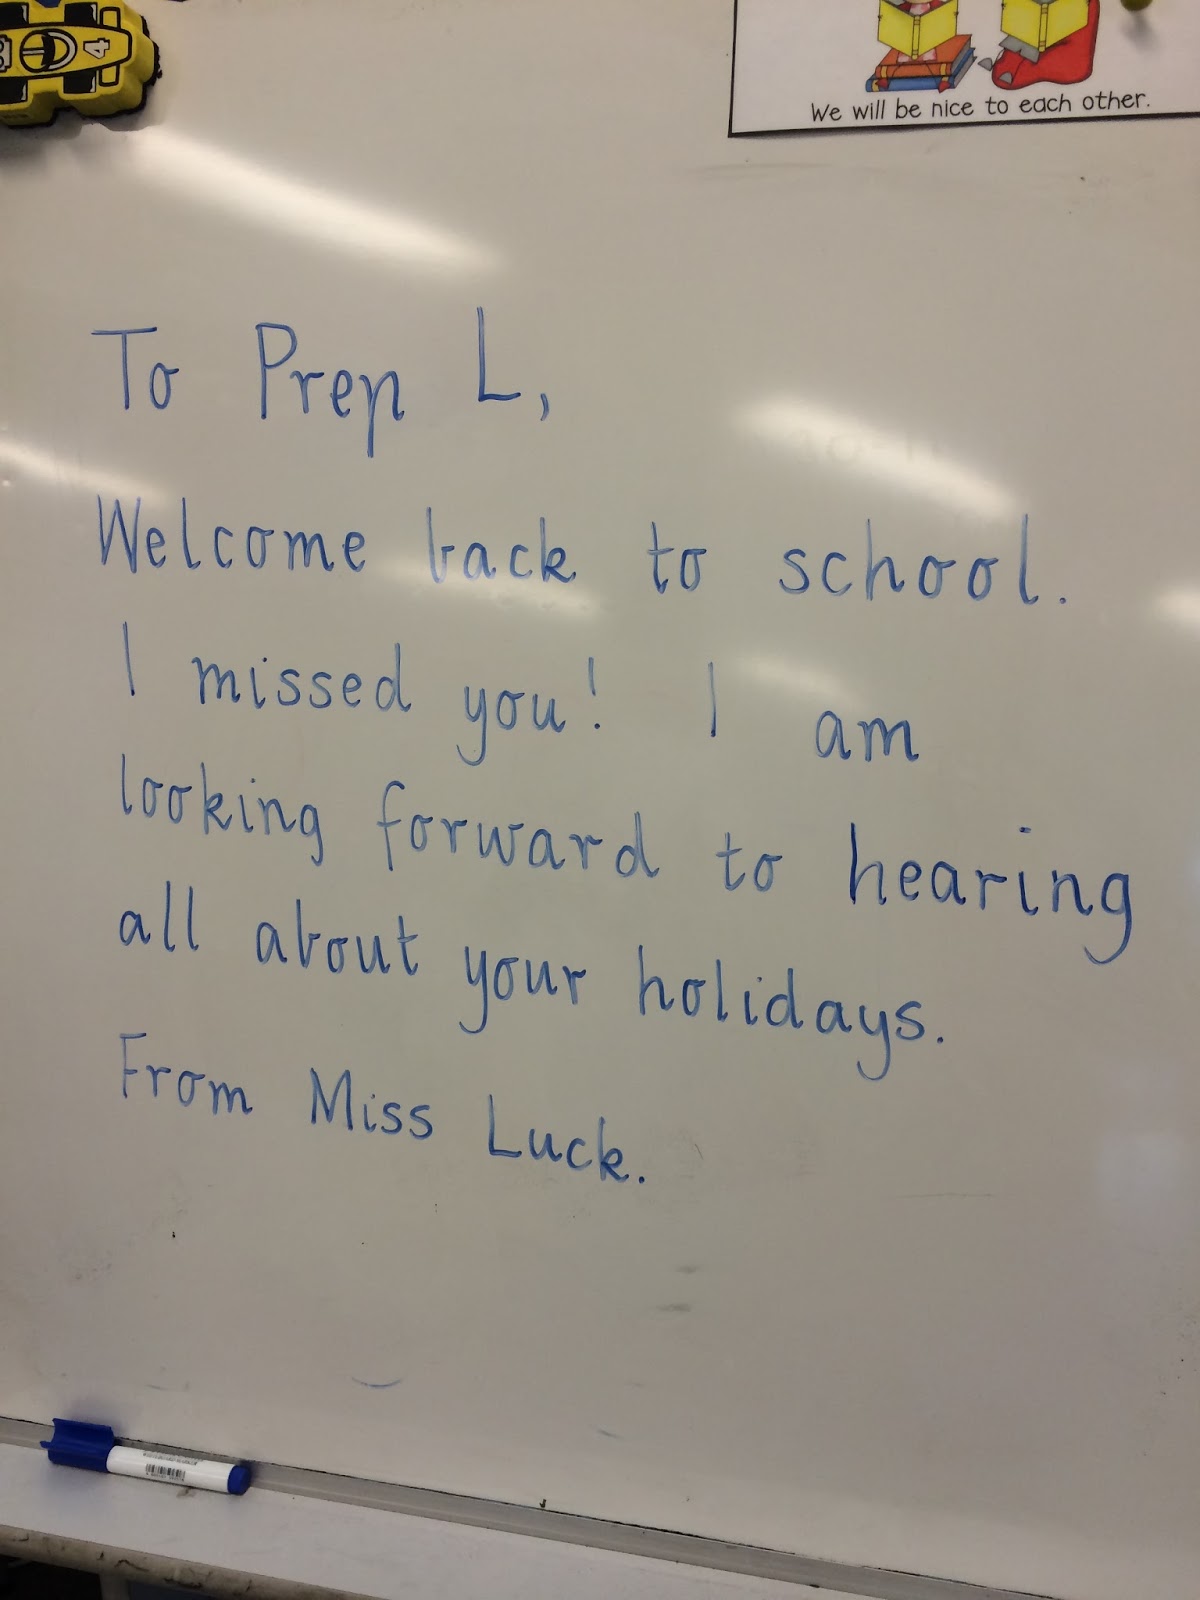 4
We will be nice to each other.
To Prep L,
Welcome back to school.
I missed you! I am
looking forward to hearing
all about your holidays.
From Miss Luck.